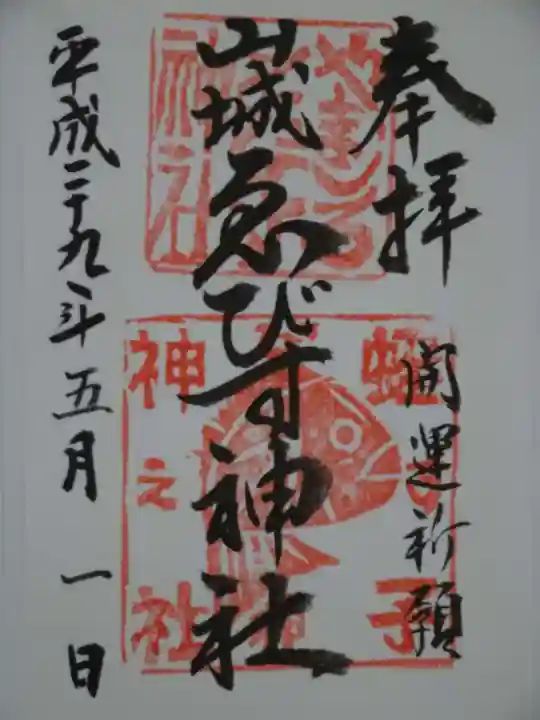 奉拝
開運祈願
山城ゑびす神社
平成二十九年五月一日
神之社